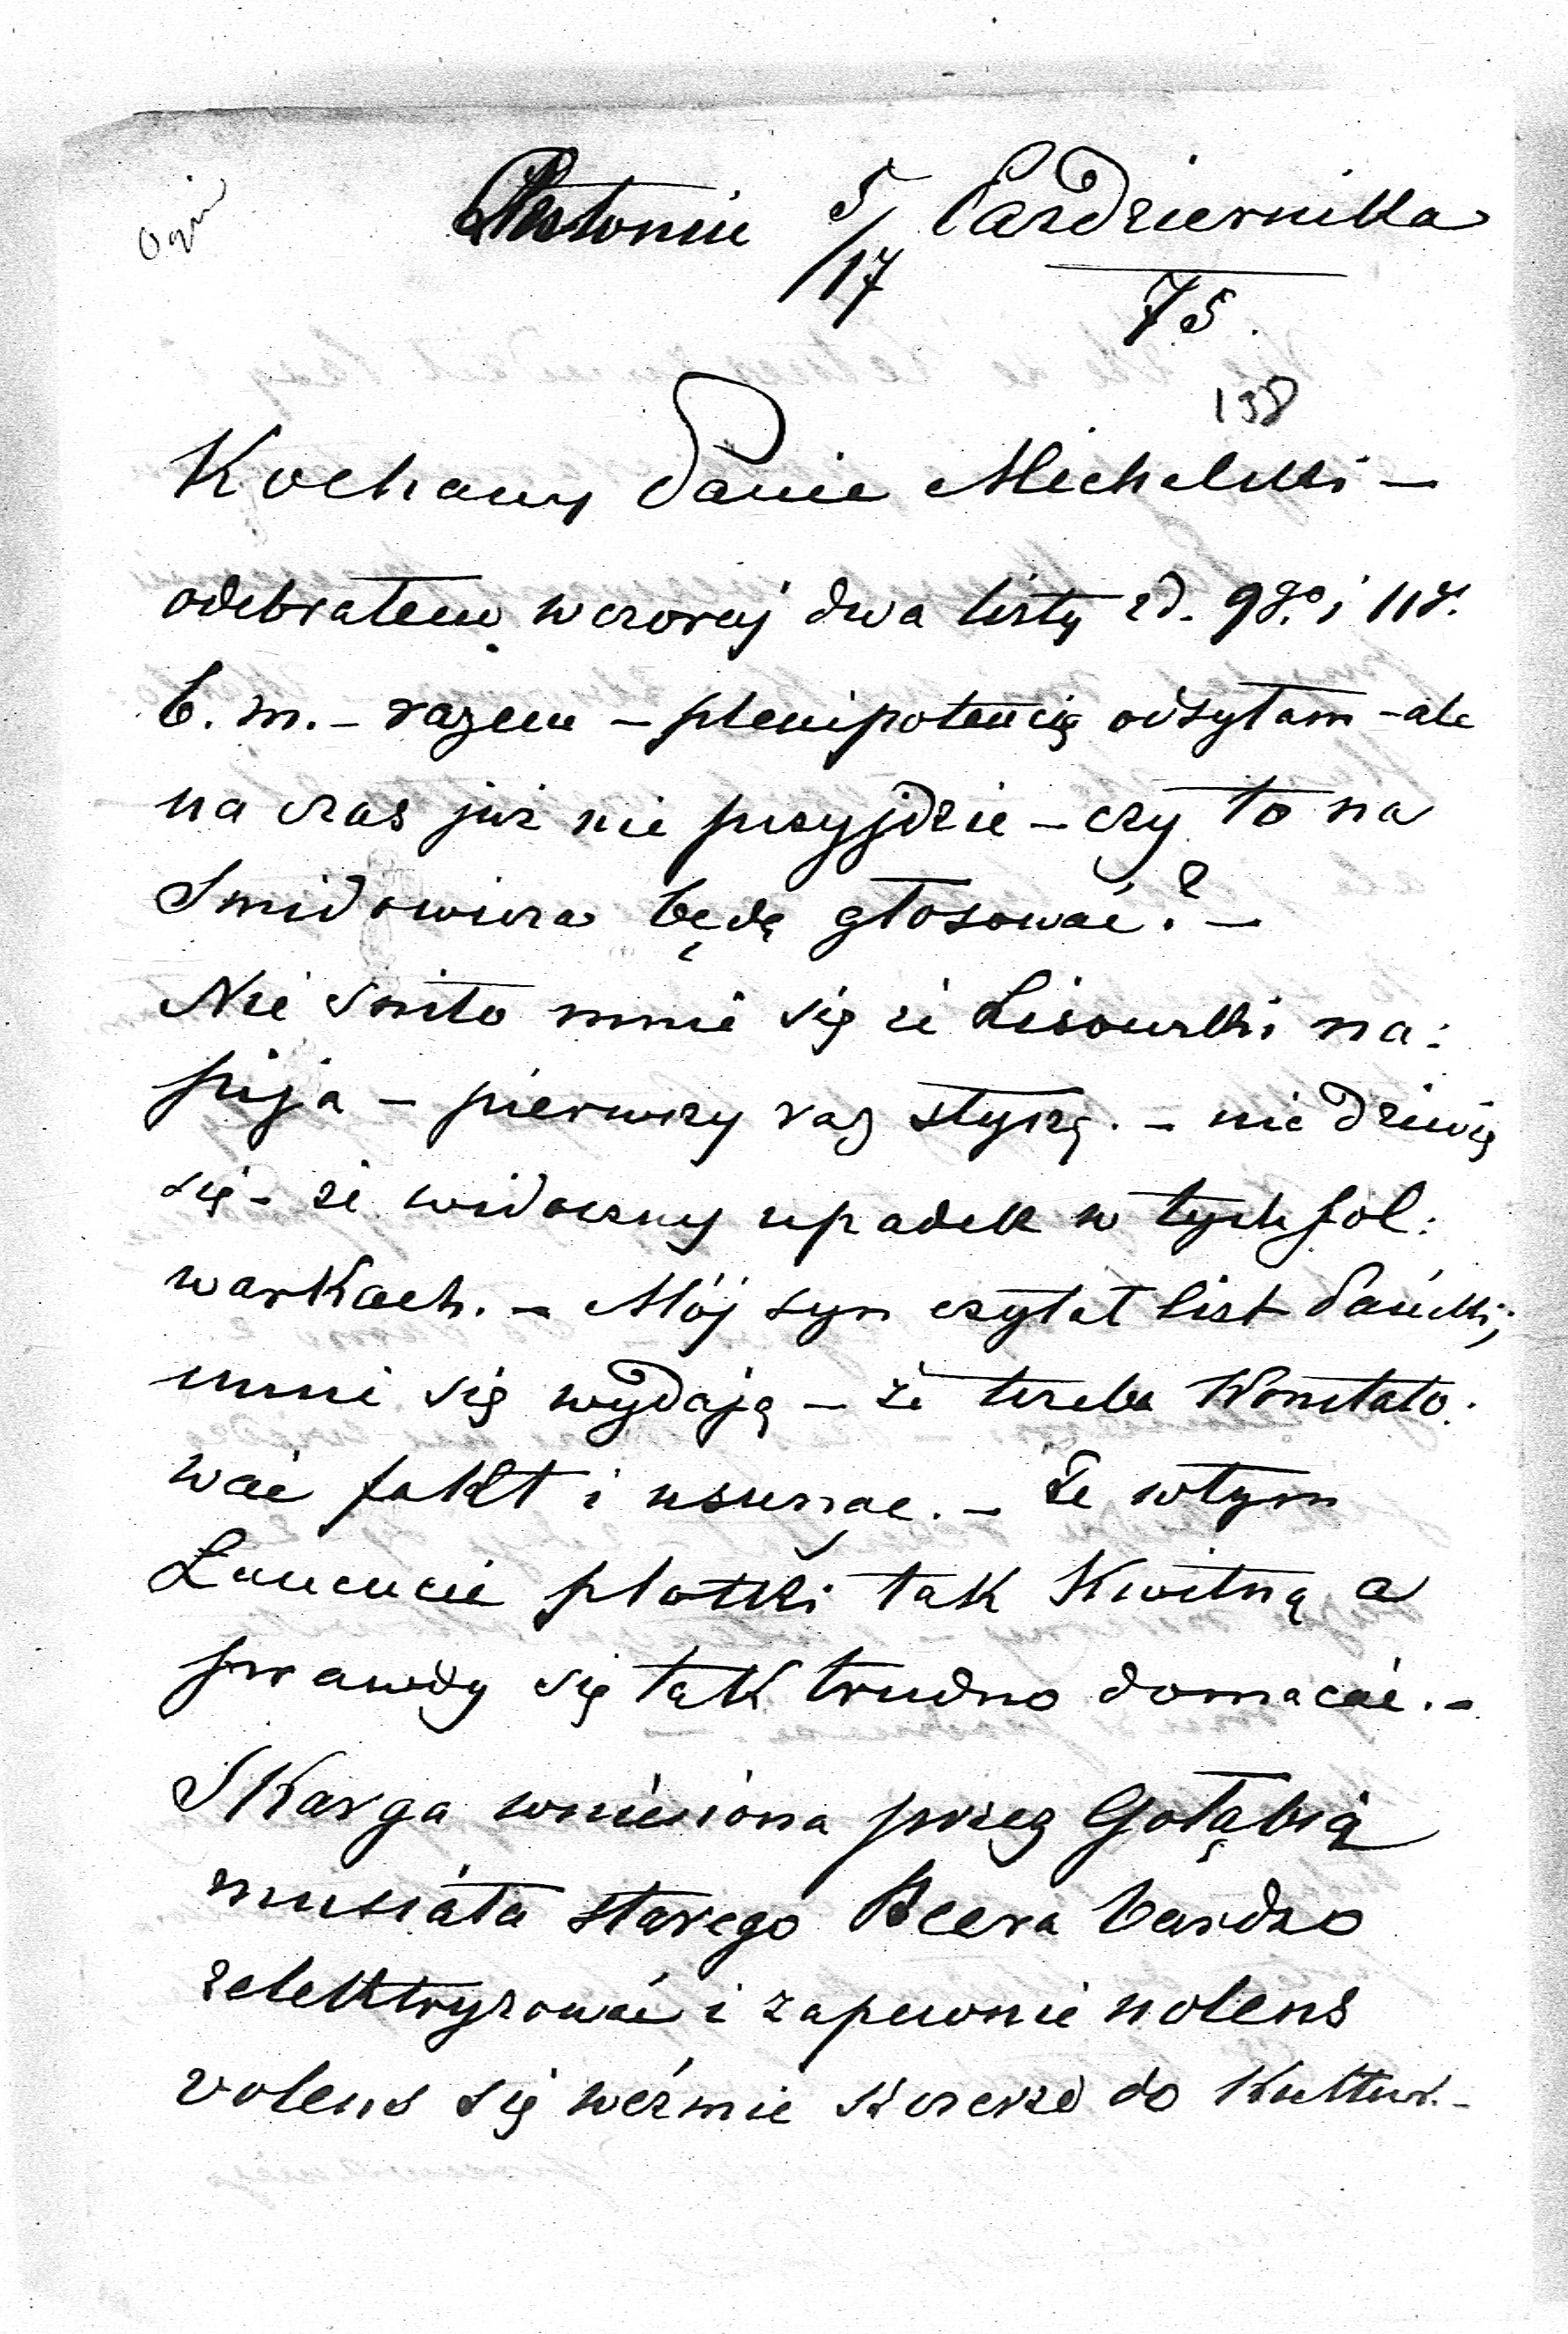 Antoniu 5/17 Pazdziernika
75.
138
Kochany Panie Michalski —
odebrałem wczoraj dwa listy zd. 9go. i 11g.
b. m. – razem – plenipotencią odsyłam – ale
na czas już nie przyjdzie – czy to na
Smidowicza będą głosować? –
Nie śniło mnie się że Lisowski na:
pija – pierwszy raz słyszę. – nie dziwię
się – że widoczny upadek w tych fol:
warkach. – Mój syn czytał list Pański;
mnie się wydają – że trzeba Konstato:
wać fakt i usunąc. – Że wtym
Łancucie plotki tak Kwitną a
prawdy się tak trudno domacać. –
SKarga wniesiona przez Gołąbia
musiała starego Beera bardzo
zelektryzować i zapewnie nolens
volens się weźmie szczerze do Kultur. –